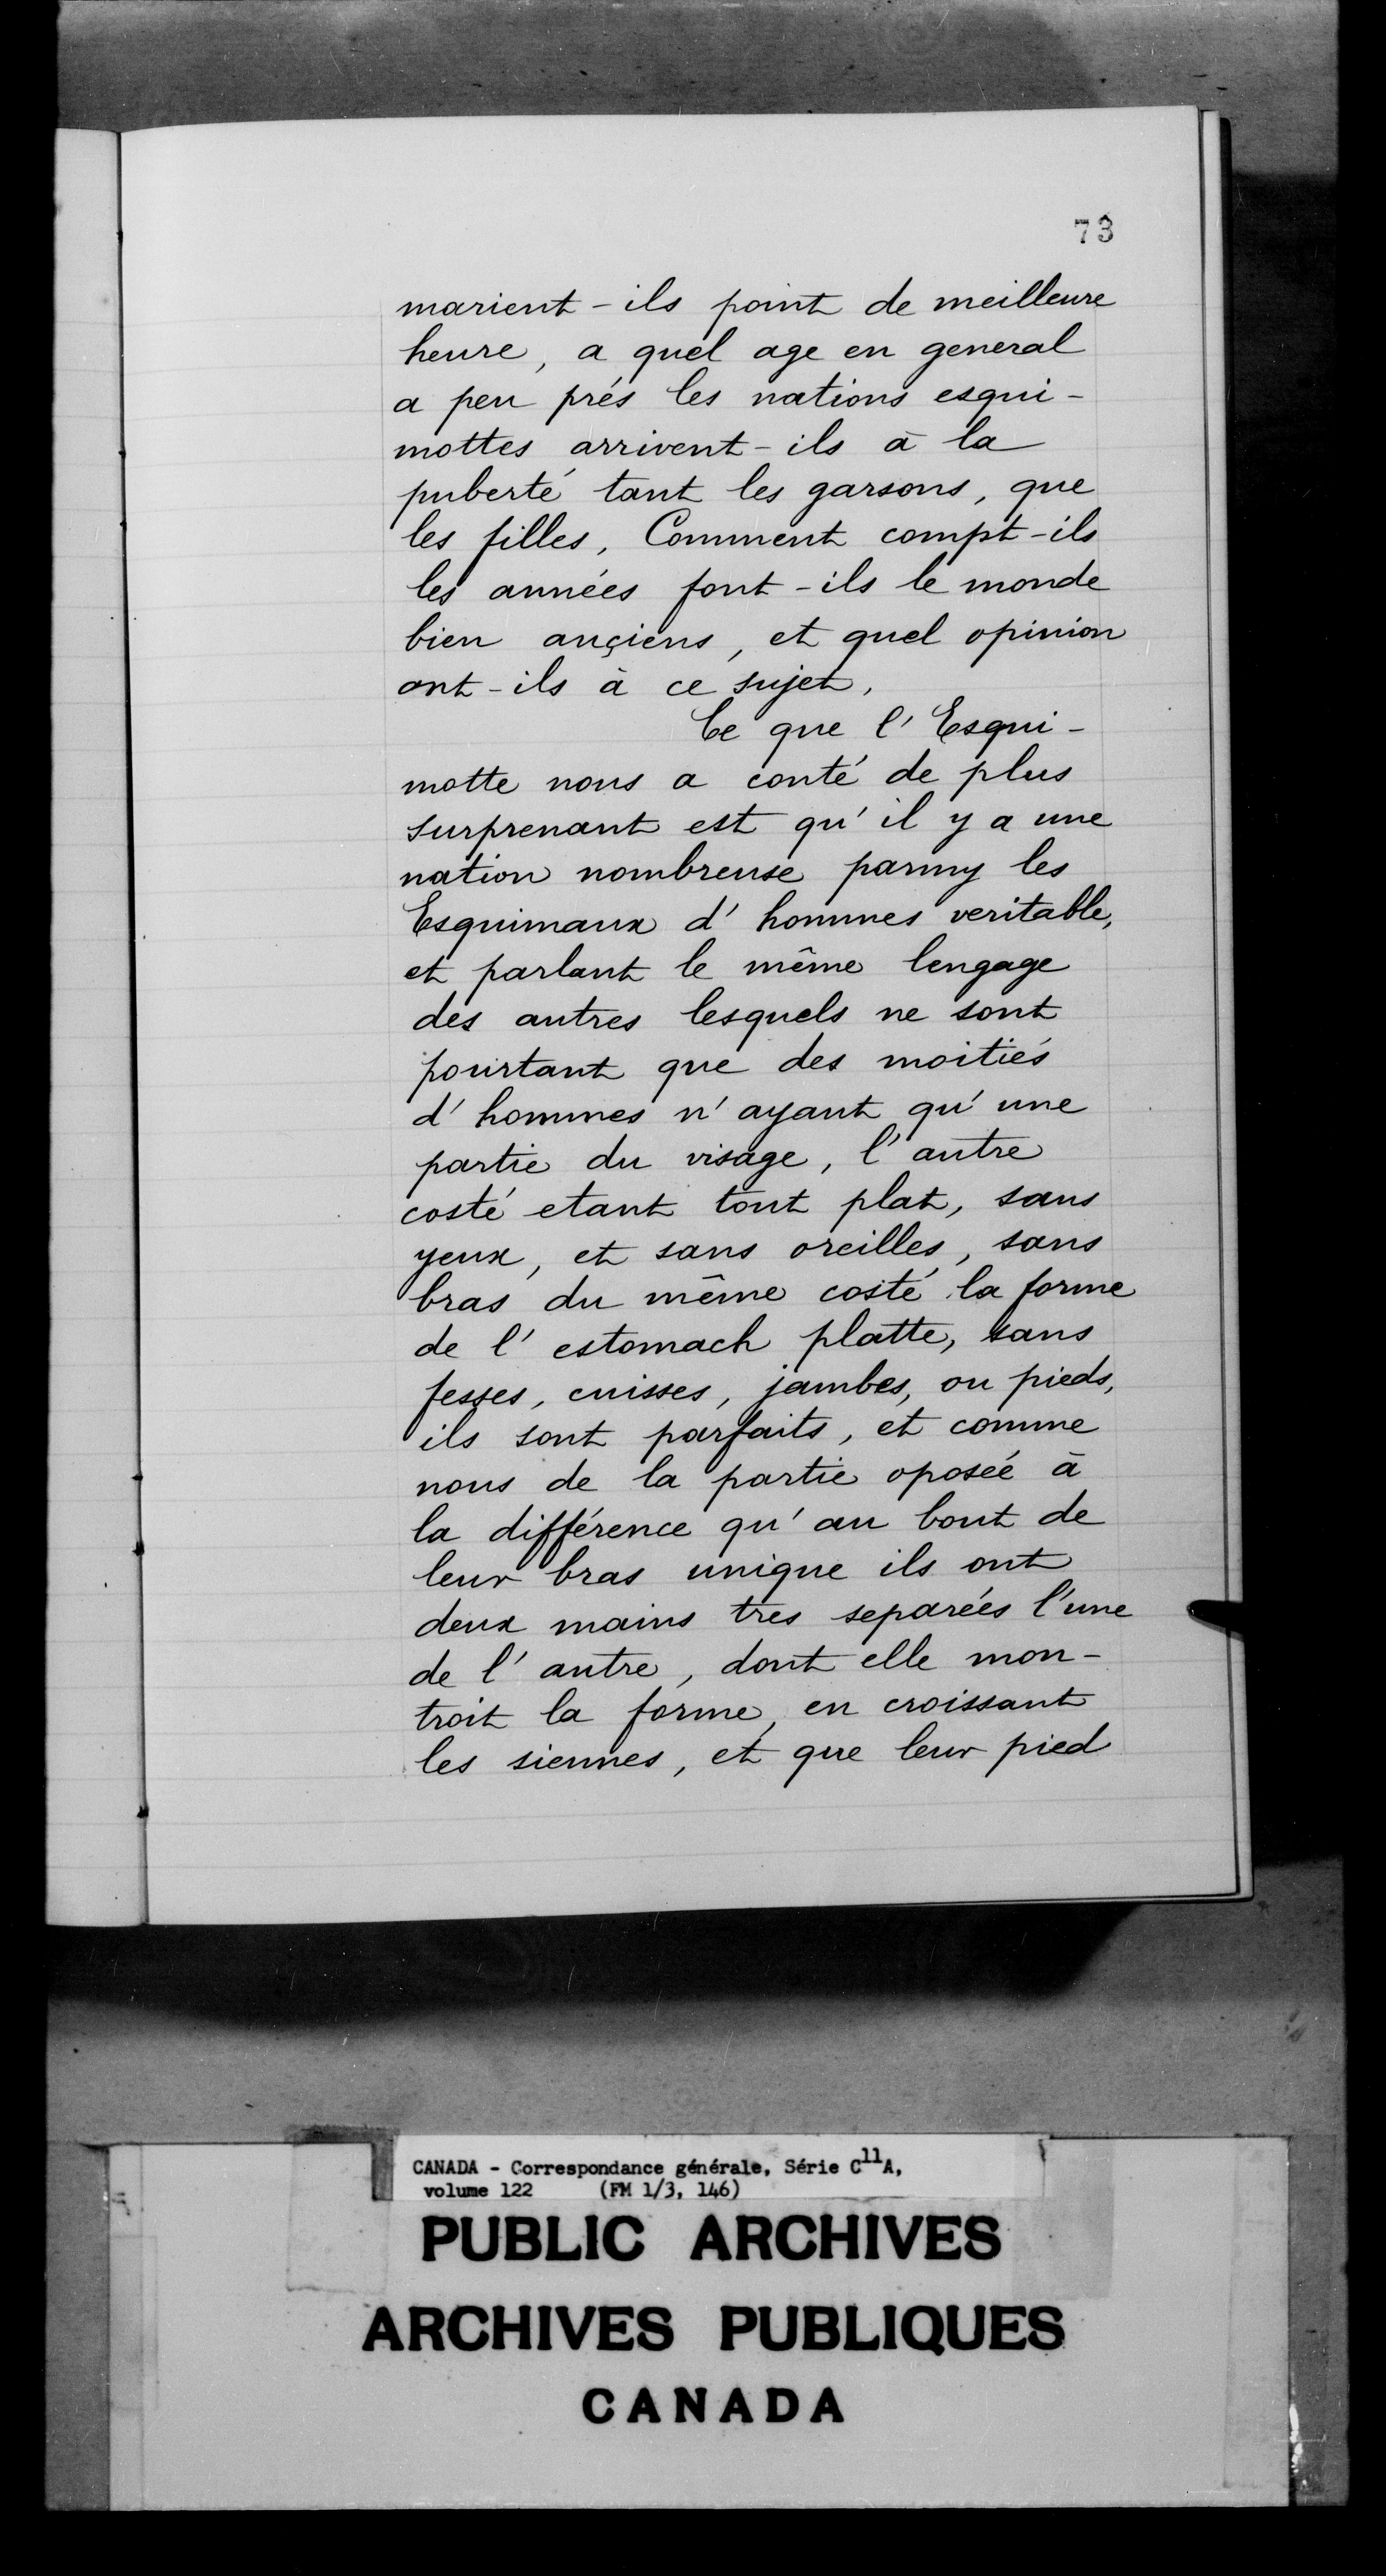 73
marient-ils point de meilleure
heure, a quel age en general
a peu prés les nations esqui-
mottes arrivent-ils à la
puberté tant les garsons, que
les filles, Comment compt-ils
les années font-ils le monde
bien ançiens, et quel opinion
ont-ils à ce sujet,
Ce que l'Esqui-
motte nous a conté de plus
surprenant est qu'il y a une
nation nombreuse parmy les
Esquimaux d'hommes veritable,
et parlant le même lengage
des autres lesquels ne sont
pourtant que des moitiés
d'hommes n'ayant qu'une
partie du visage, l'autre
costé etant tout plat, sans
yeux, et sans oreilles, sans
bras du même costé la forme
de l'estomach platte, sans
fesses, cuisses, jambes, ou pieds,
ils sont parfaits, et comme
nous de la partie oposée à
la différence qu'au bout de
leur bras unique ils ont
deux mains tres separées l'une
de l'autre, dont elle mon-
troit la forme, en croissant
les siennes, et que leur pied
CANADA - Correspondance générale, Série C11A,
volume 122 (FM 1/3, 146)
PUBLIC ARCHIVES
ARCHIVES PUBLIQUES
CANADA